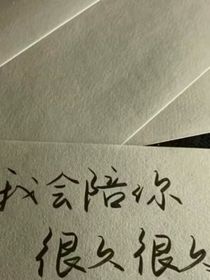 我会陪你
很久很久